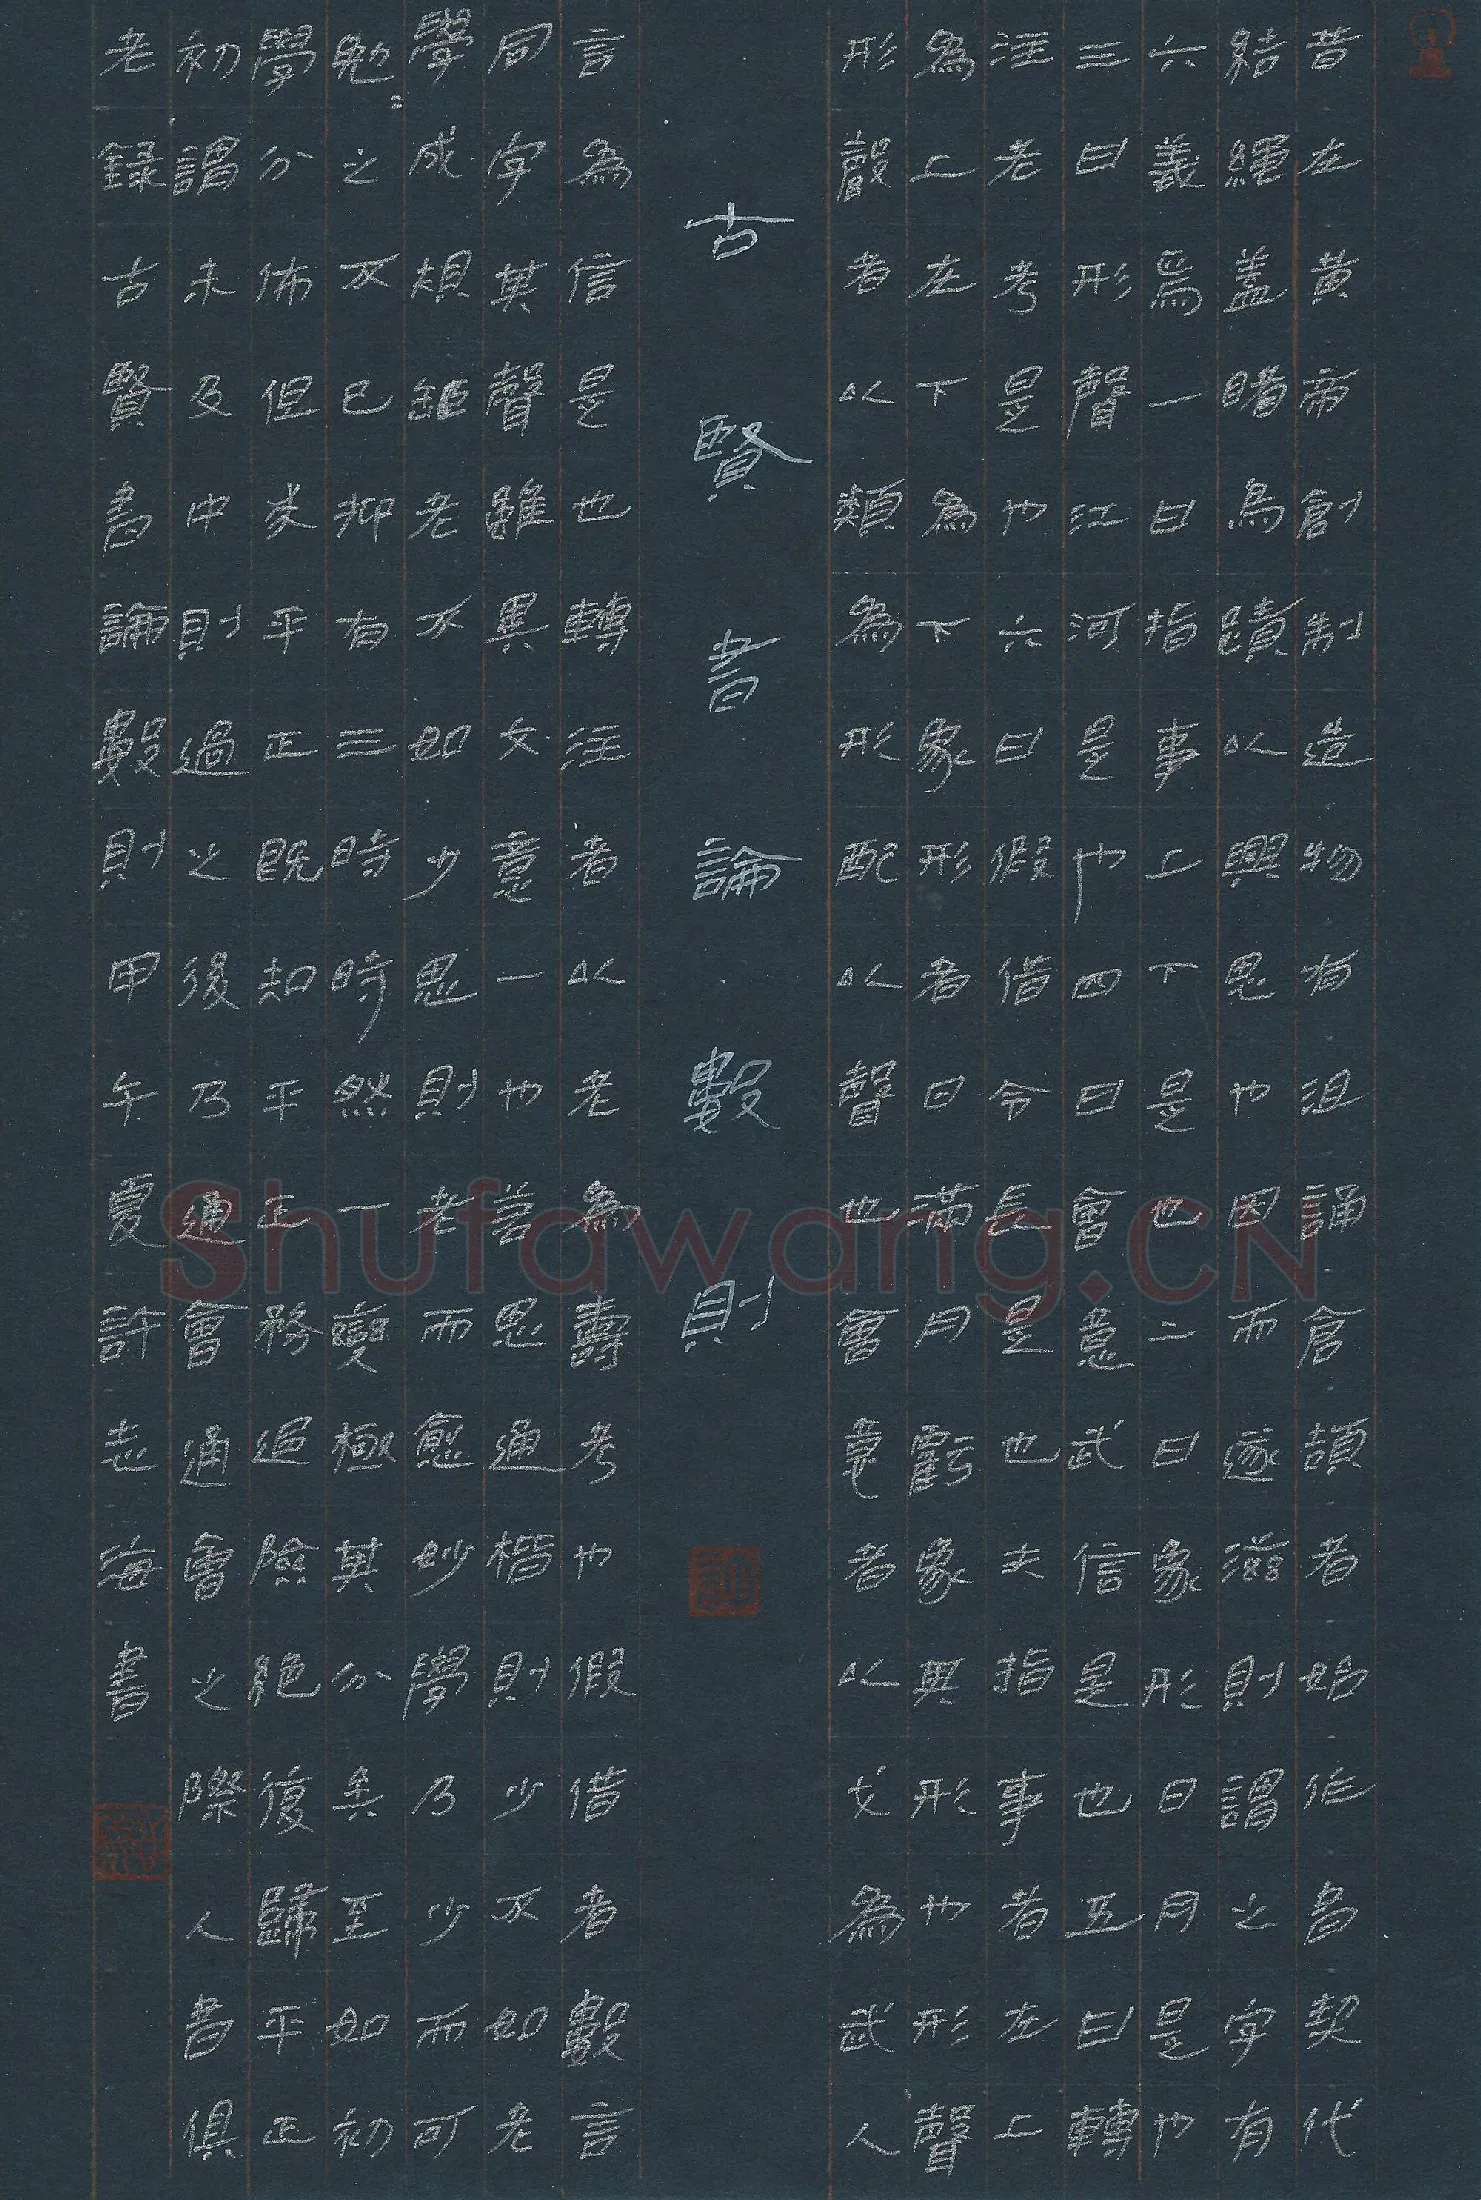 昔在黄帝創制造物有沮誦倉頡者始作書契代
結繩蓋睹鳥蹟以興思也因而遂滋則謂之字有
六義焉一曰指事上下是也二曰象形日月是也
三曰形聲江河是也四曰會意武信是也五曰轉
注老考是也六曰假借令長是也夫指事者在上
為上在下為下象形者日滿月虧象其形也形聲
形聲者以類為形配以聲也會意者以戈為武人
古賢書論數則
言為信是也轉注者以老為壽考也假借者數言
同字其聲雖異文意一也善思通楷則少不如老
學成規矩老不如少思則老而愈妙學乃少而可
勉〻之不已抑有三時時然一變極其分矣至如初
學分佈但求平正既知平正務追險絕復歸平正
初謂未及中則過之後乃通會通會之際人書俱
老録古賢書論數則甲午夏許志海書
Shufawang.CN